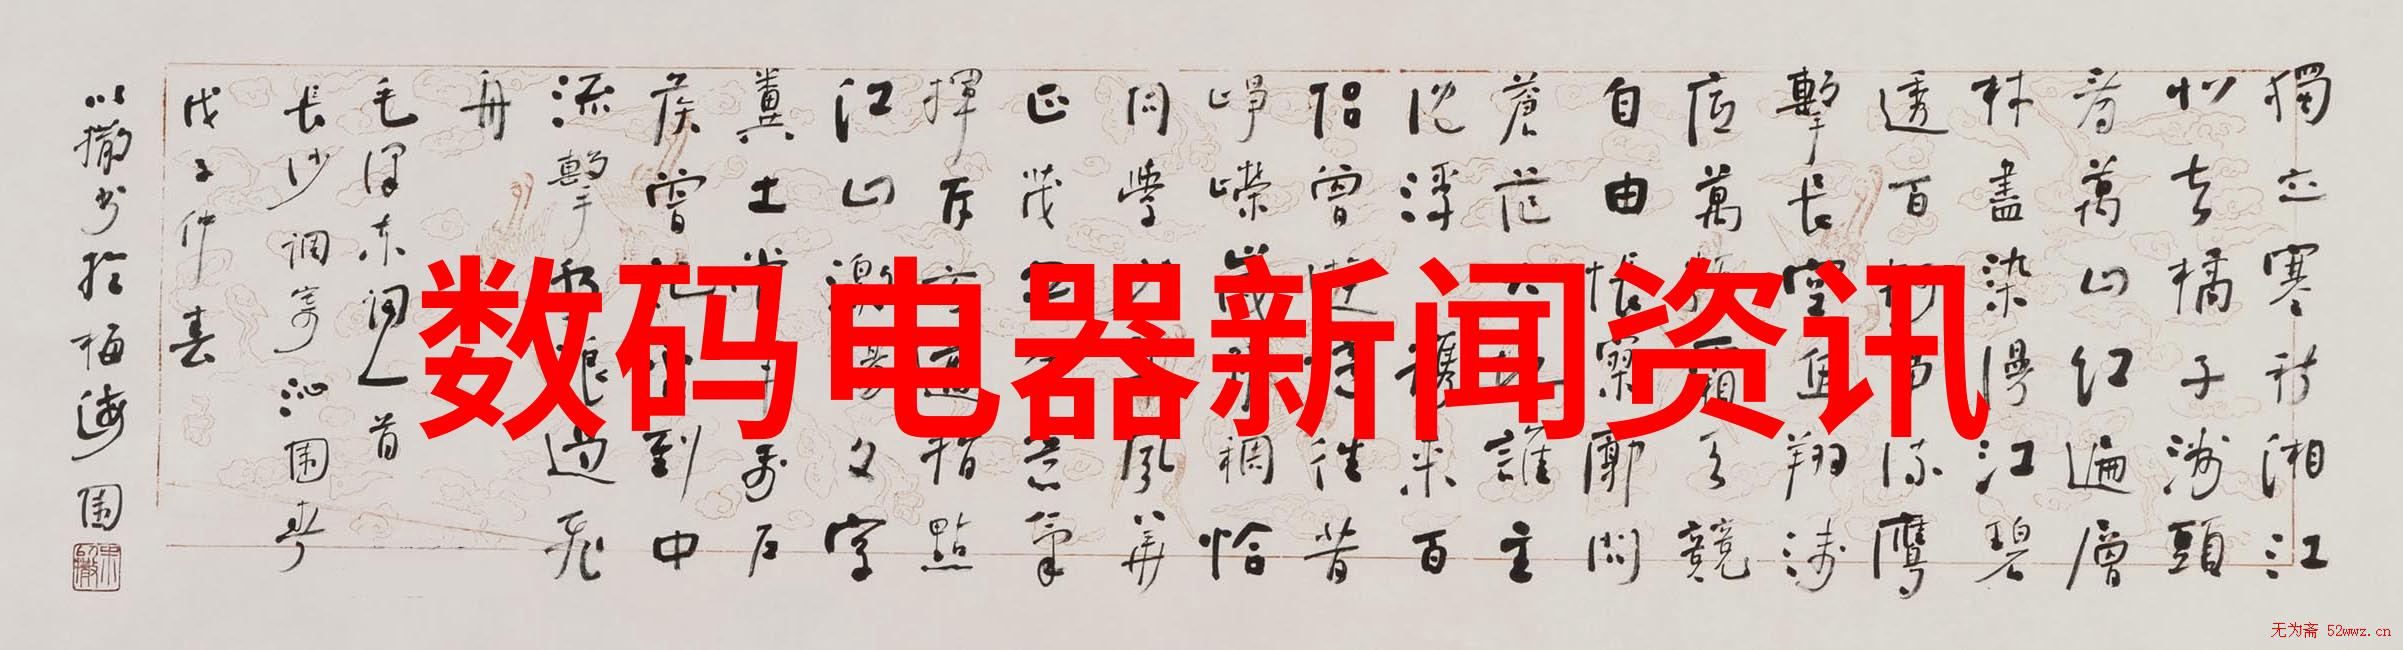 獨立寒秋湘江
北去橘子洲頭
看萬山紅遍層
林盡染漫江碧
透百舸爭流鷹
擊長空魚翔淺
底萬類霜天競
自由悵寥廓問
蒼茫大地誰主
沈浮攜來百
侶曾遊憶往昔
崢嶸歲月稠恰
同學少年風華
正茂書生意氣
揮斥方遒指點
江山激揚文字
糞土當年萬戶
侯曾記否到中
流擊水浪遏飛
舟
毛澤東詞一首
長沙調寄沁園春
戊子仲春
以撒書於梅海園
数码电器新闻资讯
无为斋 52wwz.cn